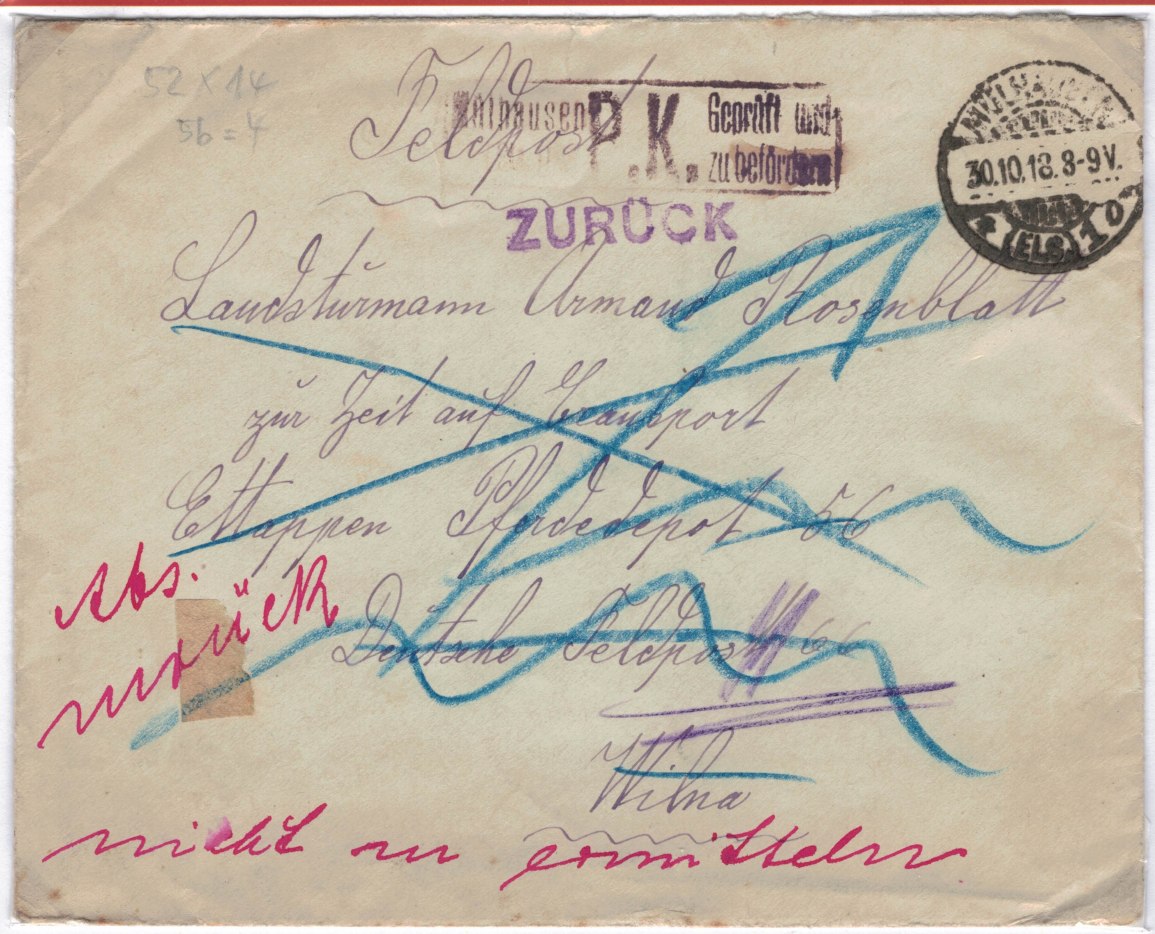 52 x 14
56 = 4
Feldpost
Mülhausen P.K. Geprüft und
zu befördern
MÜLHAUSEN
30.10.18. 8-9 V.
* (ELS.) 1 o
ZURÜCK
Landsturmann Armand Rosenblatt
zur Zeit auf Transport
Ettappen Pferdedepot 56
Deutsche Feldpost 66
Wilna
Abs.
zurück
nicht zu ermitteln